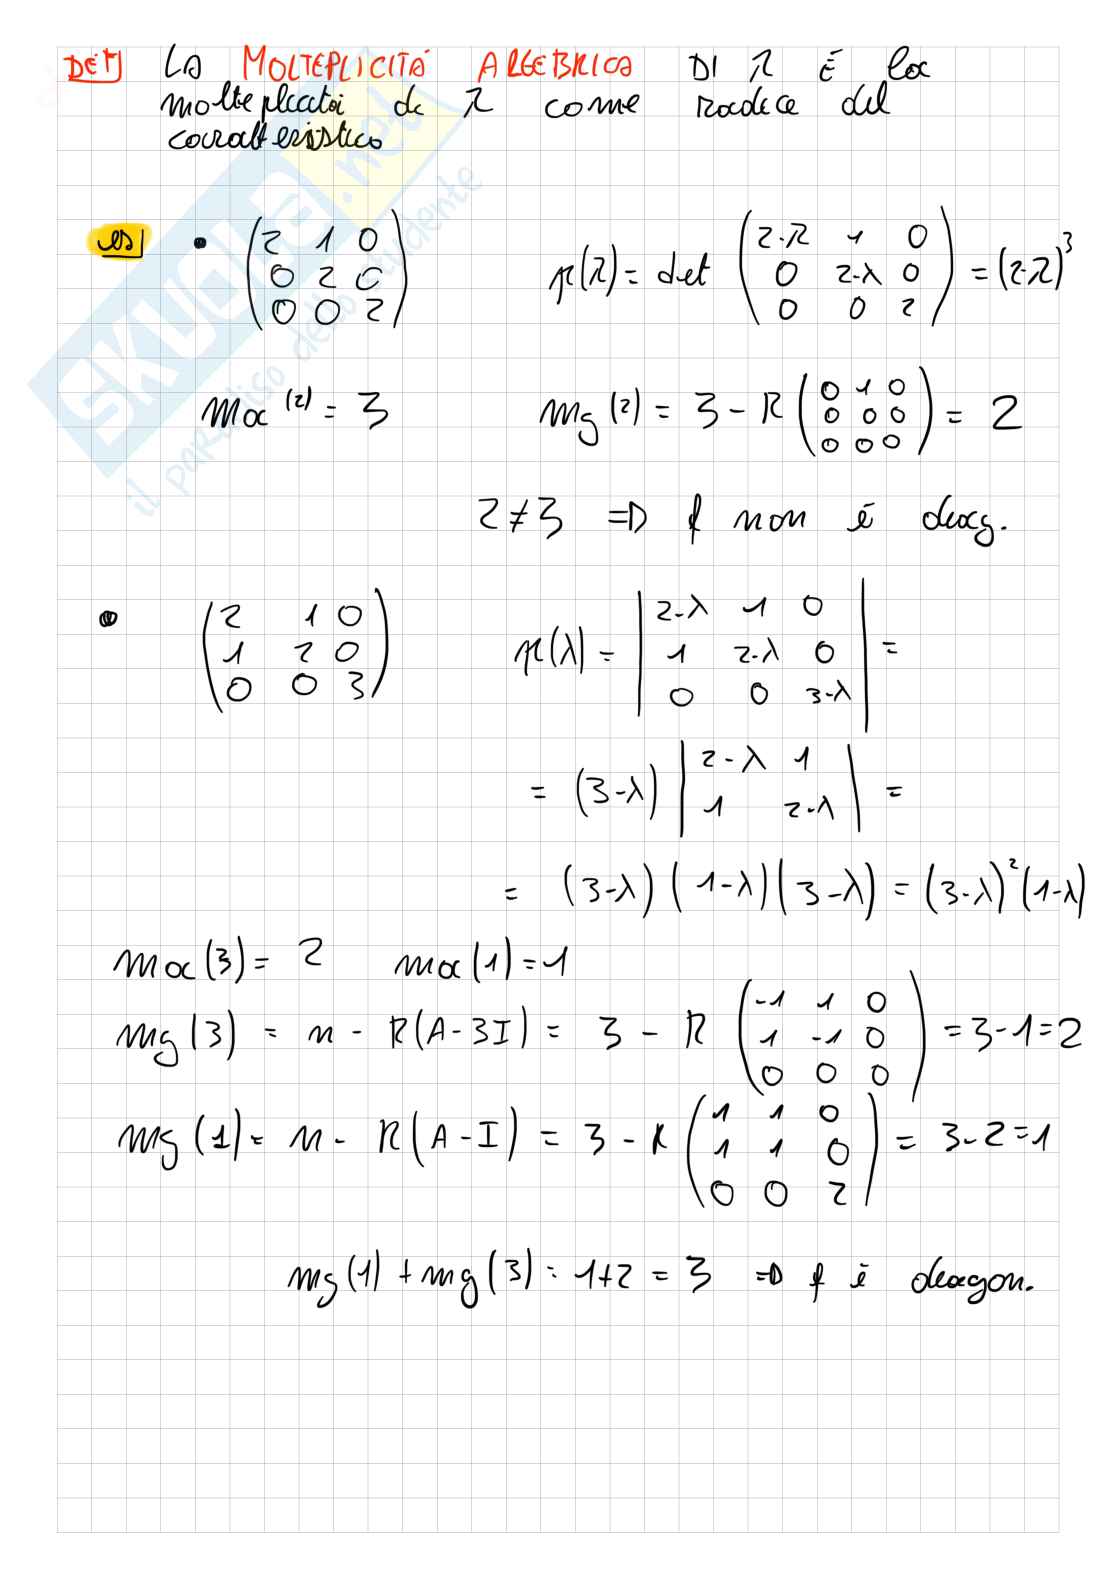 DEF LA MOLTEPLICITÀ ALGEBRICA DI λ È la
molteplicità di λ come radice del
caratteristico
es • (2 1 0 / 0 2 0 / 0 0 2) p(λ) = det (2-λ 1 0 / 0 2-λ 0 / 0 0 2) = (2-λ)³
ma(2) = 3 mg(2) = 3 - R (0 1 0 / 0 0 0 / 0 0 0) = 2
2 ≠ 3 => f non è diag.
• (2 1 0 / 1 2 0 / 0 0 3) p(λ) = |2-λ 1 0 / 1 2-λ 0 / 0 0 3-λ| =
= (3-λ) |2-λ 1 / 1 2-λ| =
= (3-λ)(1-λ)(3-λ) = (3-λ)²(1-λ)
ma(3) = 2 ma(1) = 1
mg(3) = n - R(A-3I) = 3 - R (-1 1 0 / 1 -1 0 / 0 0 0) = 3-1=2
mg(1) = n - R(A-I) = 3 - R (1 1 0 / 1 1 0 / 0 0 2) = 3-2=1
mg(1) + mg(3) = 1+2 = 3 => f è diagon.
SKUOLA.net
il paradiso dello studente